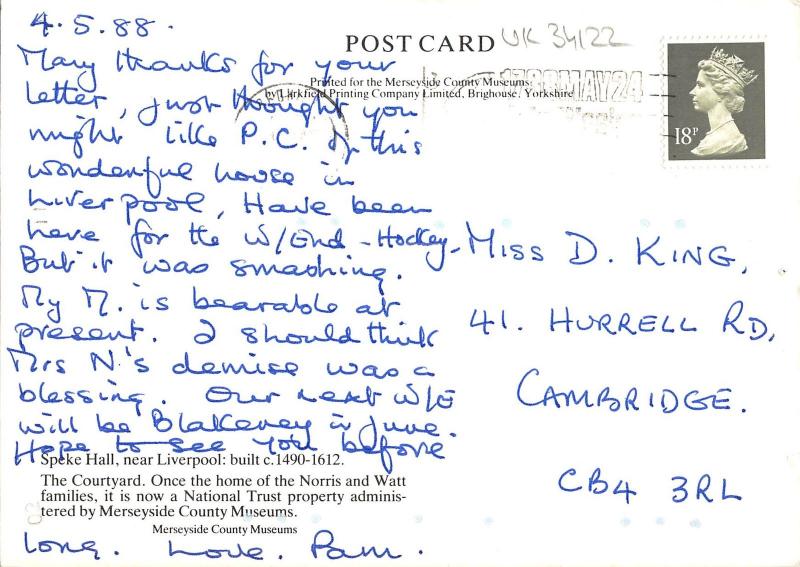 4.5.88.
POST CARD
UK 34122
Many thanks for your
Printed for the Merseyside County Museums
by Larkfield Printing Company Limited, Brighouse, Yorkshire
letter, just thought you
might like P.C. of this
wonderful house in
Liverpool, Have been
here for the W/End - Hockey -
But it was smashing.
My M. is bearable at
present. I should think
Mrs N.'s demise was a
blessing. Our next W/E
will be Blakeney in June.
Hope to see you before
Speke Hall, near Liverpool: built c.1490-1612.
The Courtyard. Once the home of the Norris and Watt
families, it is now a National Trust property adminis-
tered by Merseyside County Museums.
Merseyside County Museums
long. Love. Pam.
MAY 24
18P
MISS D. KING,
41. HURRELL RD,
CAMBRIDGE.
CB4 3RL